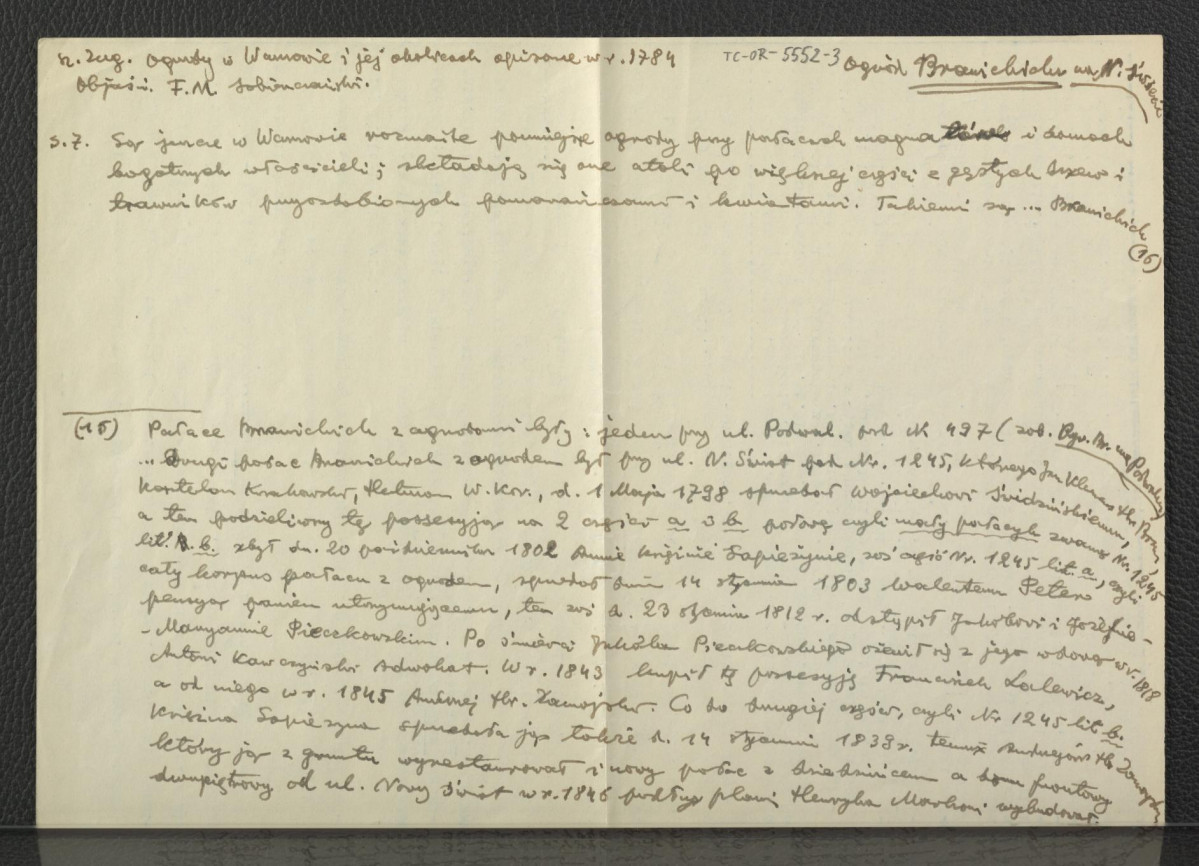 Sz. Zug. Ogrody w Warszawie i jej okolicach opisane w r. 1784
TC-OR-5552-3
Ogród Branickich na N. Świecie
Objaśn. F. M. Sobieszczański.
s. 7. Są jeszcze w Warszawie rozmaite pomniejsze ogrody przy pałacach magnatów i domach
bogatych właścicieli; składają się one atoli po większej części z gęstych drzew i
trawników przyozdobionych pomarańczami i kwiatami. Takiemi są ... Branickich
(16)
(16) Pałace Branickich z ogrodami były: jeden przy ul. Podwal. pod N 497 (zob. Ogr. Br. na Podwalu)
... Drugi pałac Branickich z ogrodem był przy ul. N. Świat pod Nr. 1245, którego Jan Klemens Hr. Bran.,
Kasztelan Krakowski, Hetman W. Kor., d. 1 Maja 1798 sprzedał Wojciechowi Świdzińskiemu,
a ten podzieliwszy tę possesyją na 2 części a i b połowę czyli mały pałacyk zwany Nr. 1245
lit. b. zbył dn. 20 października 1802 Annie księżnie Sapieżynie, zaś część Nr. 1245 lit. a., czyli
cały korpus pałacu z ogrodem, sprzedał dnia 14 stycznia 1803 Walentemu Peters
pensyą panien utrzymującemu, ten zaś d. 23 stycznia 1812 r. odstąpił Jakóbowi i Józefie-
-Maryannie Pieczkowskim. Po śmierci Jakóba Pieczkowskiego ożenił się z jego wdową w r. 1818
Antoni Kawczyński Adwokat. W r. 1843 kupił tę possesyję Franciszek Zalewicz,
a od niego w r. 1845 Andrzej Hr. Zamojski. Co do drugiej części, czyli Nr 1245 lit b.
Księżna Sapieżyna sprzedała ją także d. 14 stycznia 1839 r. temuż Andrzejowi Hr. Zamoyskiemu
który ją z gruntu wyrestaurował i nowy pałac z dziedzińcem a dom frontowy
dwupiętrowy od ul. Nowy Świat w r. 1846 podług planu Henryka Marconi wybudował.